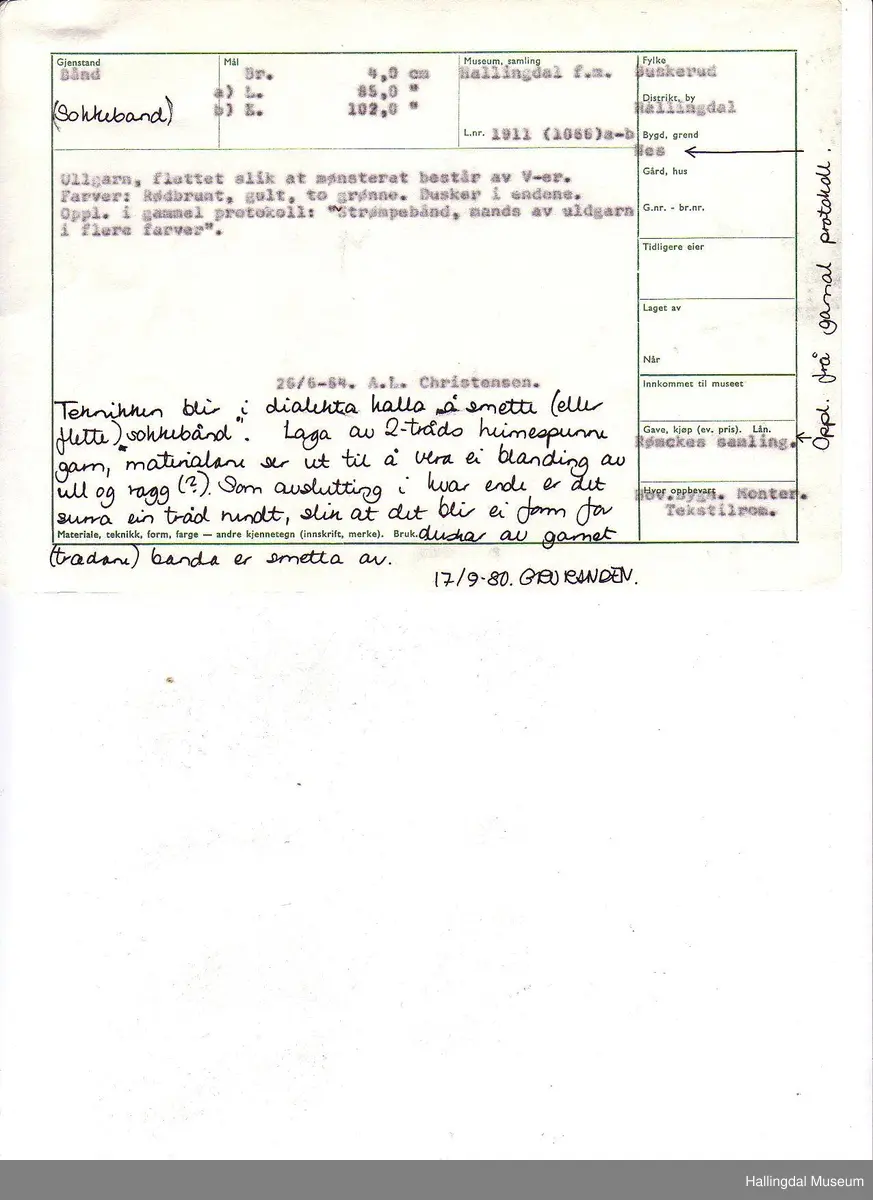 Gjenstand
Bånd
(Sokkeband)
Mål
Br. 4,0 cm
a) L. 85,0 "
b) L. 102,0 "
Museum, samling
Hallingdal f.m.
L.nr. 1911 (1066)a-b
Fylke
Buskerud
Distrikt, by
Hallingdal
Bygd, grend
Nes
Gård, hus
G.nr. - br.nr.
Tidligere eier
Laget av
Når
Innkommet til museet
Gave, kjøp (ev. pris). Lån.
Rømckes samling.
Hvor oppbevart
Hov.bygn. Monter.
Tekstilrom.
Oppl. frå gamal protokoll.
Ullgarn, flettet slik at mønsteret består av V-er.
Farver: Rødbrunt, gult, to grønne. Dusker i endene.
Oppl. i gammel protokoll: "Strømpebånd, mands av uldgarn
i flere farver".
26/6-64. A.L. Christensen.
Teknikken blir i dialekta kalla "å smette (eller
flette) sokkebånd". Laga av 2-tråds heimespunne
garn, materialane ser ut til å vera ei blanding av
ull og ragg (?). Som avslutting i kvar ende er det
surra ein tråd rundt, slik at det blir ei form for
Materiale, teknikk, form, farge — andre kjennetegn (innskrift, merke). Bruk.
duskar av garnet
(trædane) banda er smetta av.
17/9-80. GRO RANDEN.
Hallingdal Museum